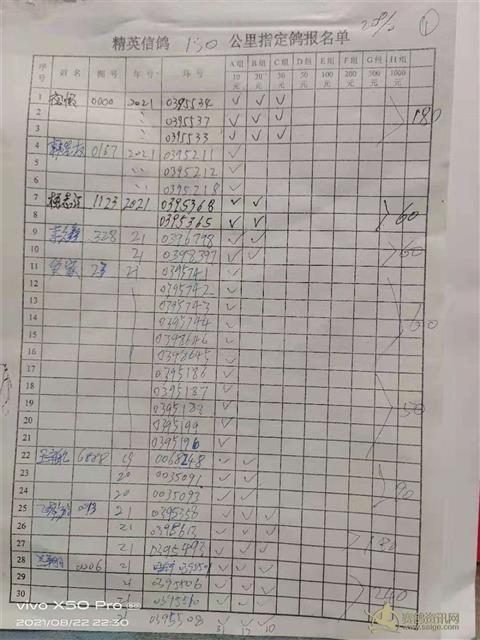 20% ①
精英信鸽 150 公里指定鸽报名单
序号 姓名 棚号 年号 环号 A组10元 B组20元 C组30元 D组50元 E组100元 F组200元 G组500元 H组1000元
1 0000 2021 0395534 ✓ ✓ ✓
2 〃 0395537 ✓ ✓ ✓
3 〃 0395533 ✓ ✓ ✓ 180
4 0167 2021 0395211 ✓
5 〃 0395212 ✓
6 〃 0395218 ✓
7 1123 2021 0395368 ✓ ✓
8 0395365 ✓ ✓ 60
9 328 21 0396798 ✓ ✓
10 21 0398397 ✓ ✓ 60
11 21 0395741 ✓
12 0395742 ✓
13 0395743 ✓
14 0395744 ✓
15 0398646 ✓
16 0398645 ✓
17 0395186 ✓
18 0395187 ✓
19 0395183 ✓
20 0395199 ✓ 50
21 0395196 ✓
22 6888 19 0068248 ✓ ✓
23 20 0035091 ✓ ✓
24 20 0035093 ✓ ✓ 90
25 21 0395368 ✓ ✓ ✓
26 21 ✓ ✓ ✓
27 21 0395493 ✓ ✓ ✓ 180
28 0006 ✓ ✓ ✓
29 ✓ ✓ ✓
30 21 ✓ ✓ ✓ 240
0395508 ✓ ✓ ✓
31 17 10
vivo X50 Pro
2021/08/22 22:30
赛鸽资讯网
www.saige.com